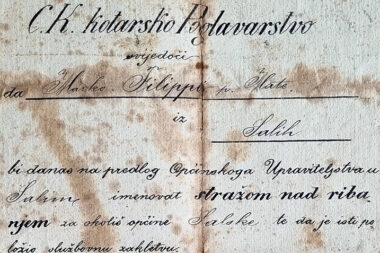 C.K. kotarsko Poglavarstvo
svjedoči
da Marko Filippi p. Mate
iz
Salih
bi danas na predlog Općinskoga Upraviteljstva u
Salim imenovat stražom nad riba
njem za okoliš općine Salske te da je isti po
ložio službovnu zakletvu.